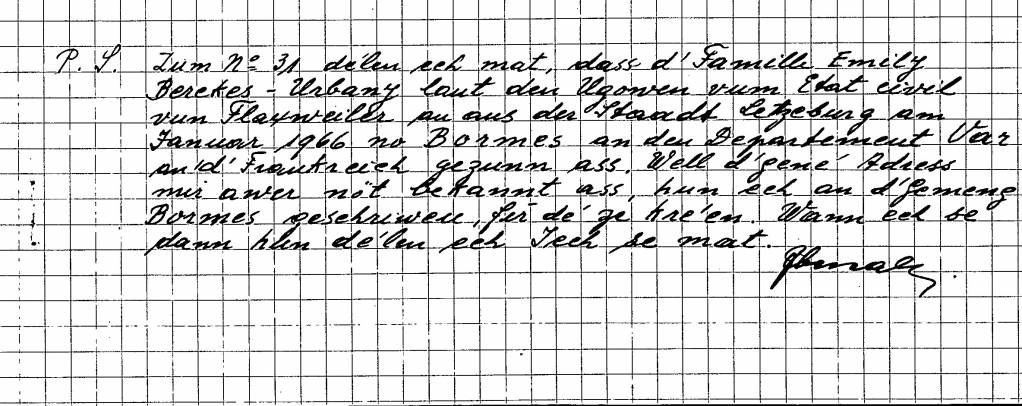 P. S. Zum No 31 délen ech mat, dass d'Famill Emily
Berckes - Urbany laut den Ugowen vum Etat civil
vun Flaxweiler an aus der Staadt Letzeburg am
Januar 1966 no Bormes an den Departement Var
an d'Frankreich gezunn ass. Well d'gené Adress
mir awer nöt bekannt ass, hun ech an d'Gemeng
Bormes geschriwen, fir dé ze kréen. Wann ech se
dann hun délen ech Iech se mat.